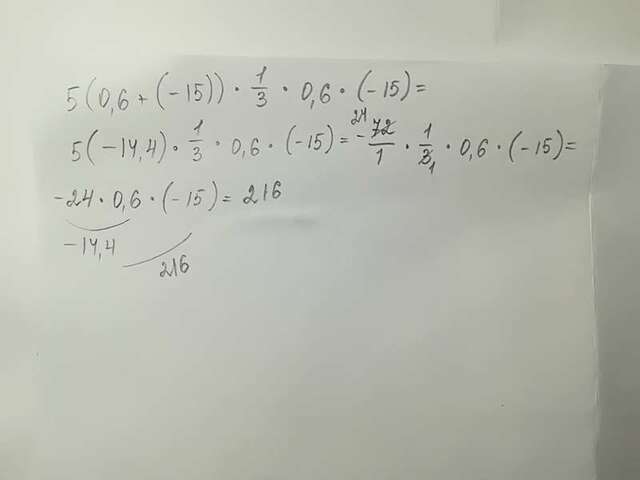 5(0,6 + (-15)) · 1/3 · 0,6 · (-15) =
5(-14,4) · 1/3 · 0,6 · (-15) = -72/1 24 · 1/3 1 · 0,6 · (-15) =
-24 · 0,6 · (-15) = 216
-14,4
216